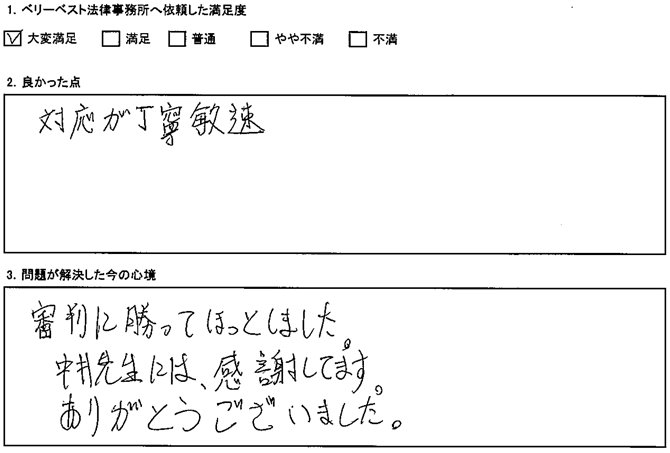 1. ベリーベスト法律事務所へ依頼した満足度
☑ 大変満足 □ 満足 □ 普通 □ やや不満 □ 不満
2. 良かった点
対応が丁寧敏速
3. 問題が解決した今の心境
審判に勝ってほっとしました。
中井先生には、感謝してます。
ありがとうございました。